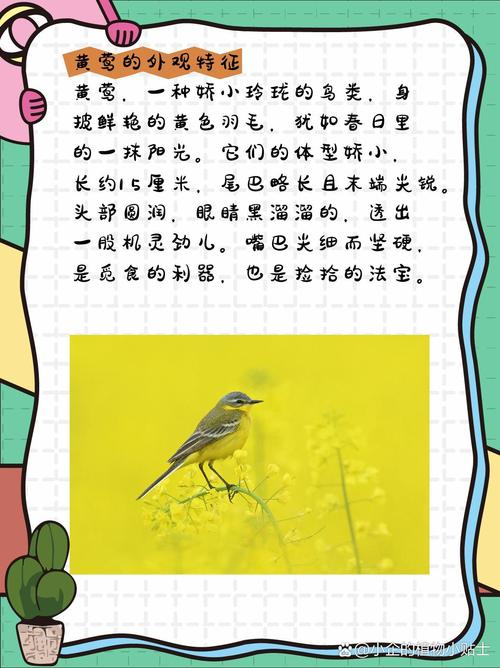 黄莺的外观特征
黄莺，一种娇小玲珑的鸟类，身
披鲜艳的黄色羽毛，犹如春日里
的一抹阳光。它们的体型娇小，
长约15厘米，尾巴略长且末端尖锐。
头部圆润，眼睛黑溜溜的，透出
一股机灵劲儿。嘴巴尖细而坚硬，
是觅食的利器，也是捡拾的法宝。
@小企的植物小贴士